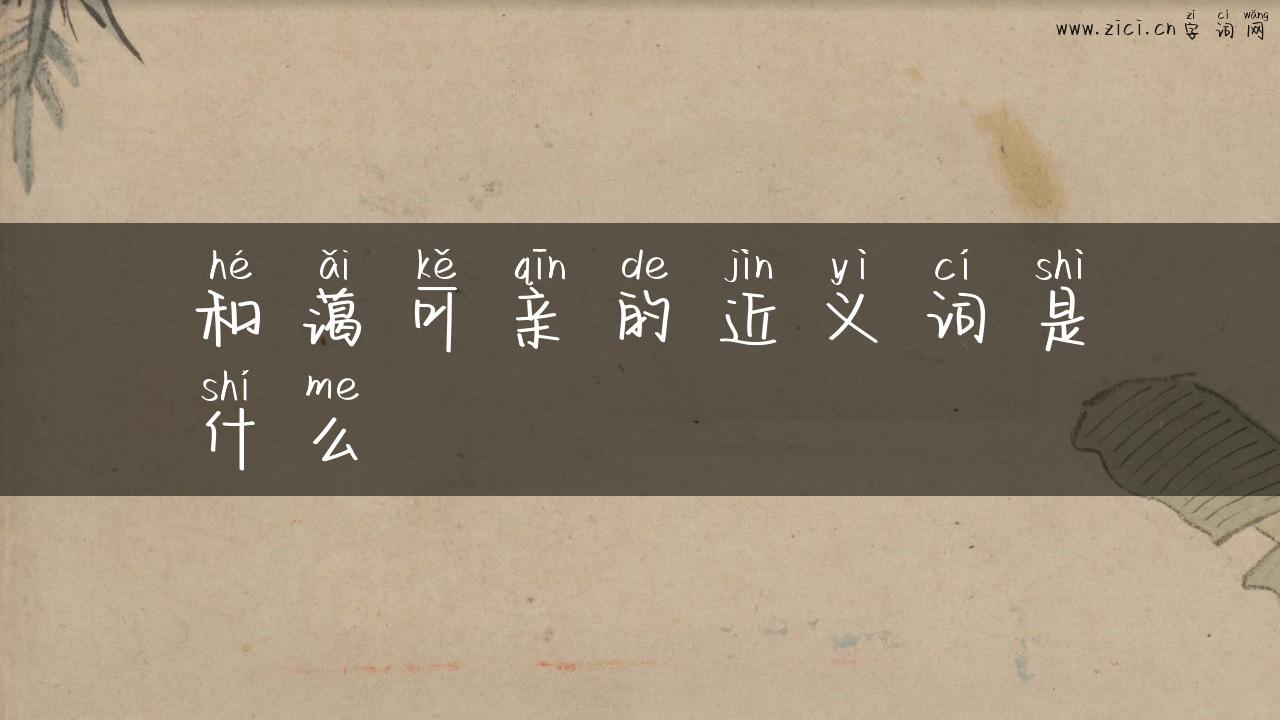 zì cí wǎng
www.zici.cn 字词网
hé ǎi kě qīn de jìn yì cí shì
和蔼可亲的近义词是
shí me
什么